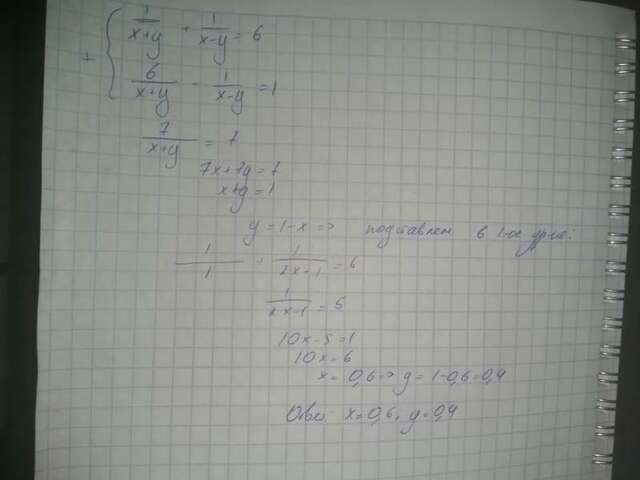 + { 1/(x+y) + 1/(x-y) = 6
6/(x+y) - 1/(x-y) = 1
7/(x+y) = 7
7x+7y=7
x+y=1
y=1-x => подставляем в 1-ое ур-ие:
1/1 + 1/(2x-1) = 6
1/(2x-1) = 5
10x-5=1
10x=6
x=0,6 => y=1-0,6=0,4
Ответ: x=0,6, y=0,4